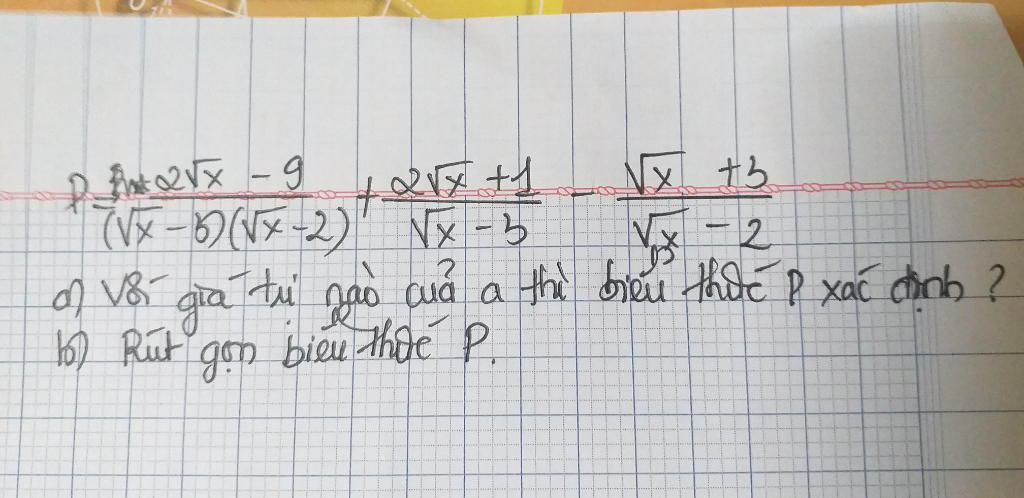 P = (2√x - 9)/((√x - 3)(√x - 2)) + (2√x + 1)/(√x - 3) - (√x + 3)/(√x - 2)
a) Với giá trị nào của a thì biểu thức P xác định ?
b) Rút gọn biểu thức P.